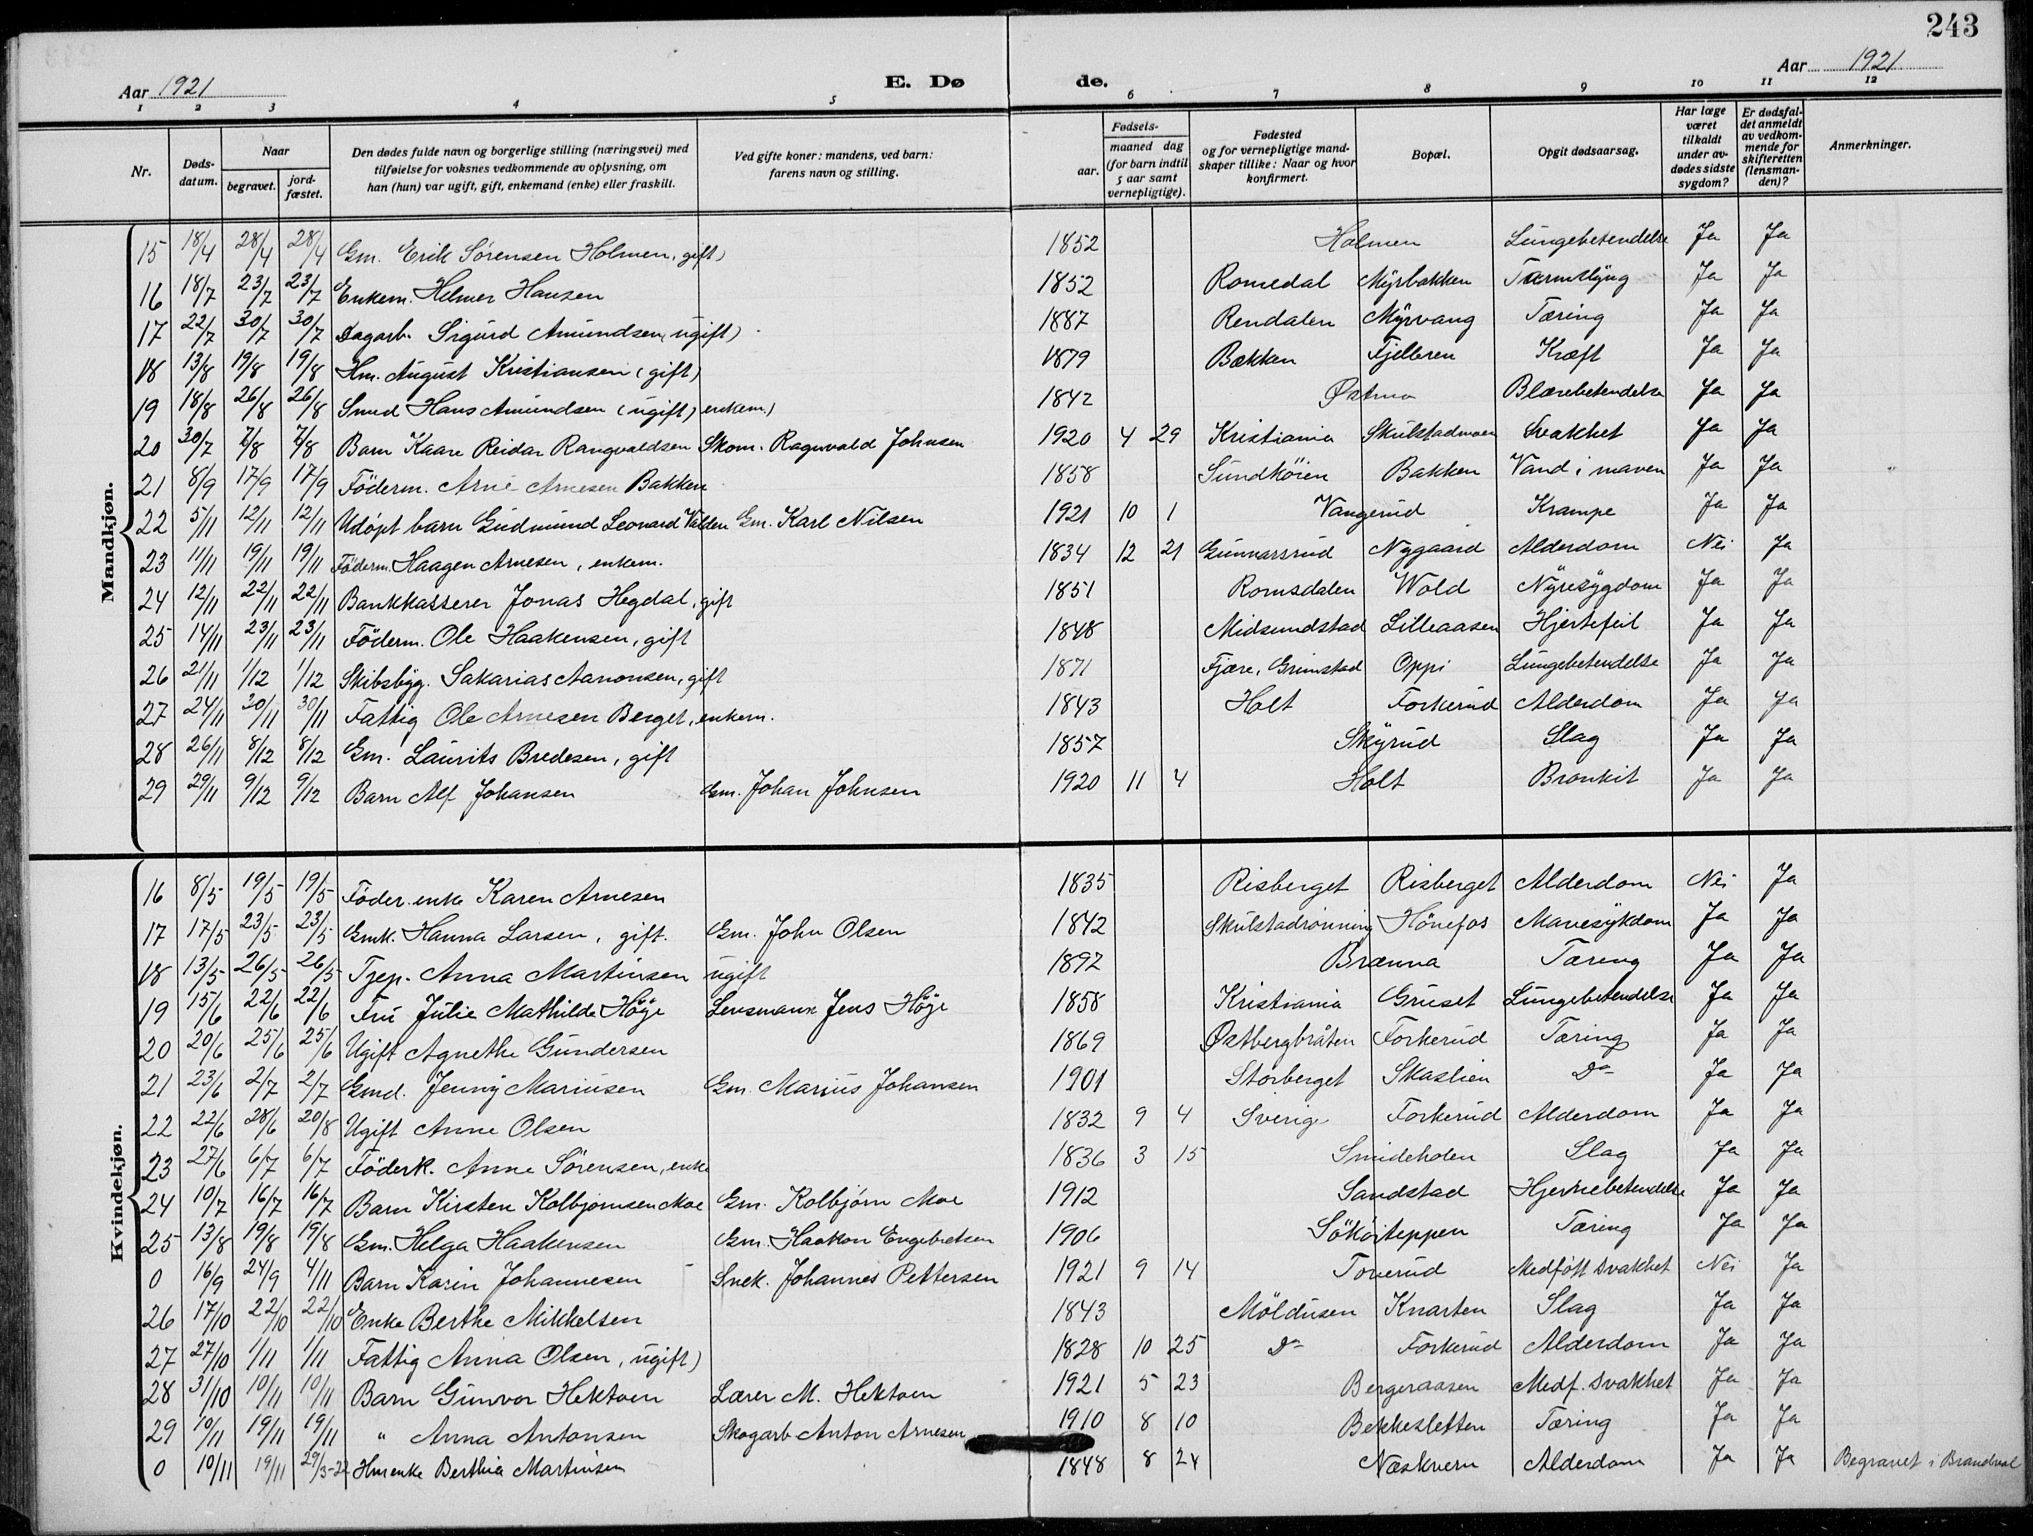 243
Aar 1921 E. Dø de. Aar 1921
1 2 3 4 5 6 7 8 9 10 11 12
Nr. Døds-datum. Naar begravet. jord-fæstet. Den dødes fulde navn og borgerlige stilling (næringsvei) med tilføielse for voksnes vedkommende av oplysning, om han (hun) var ugift, gift, enkemand (enke) eller fraskilt. Ved gifte koner: mandens, ved barn: farens navn og stilling. Fødsels- aar. maaned dag (for barn indtil 5 aar samt vernepligtige). Fødested og for vernepligtige mand-skaper tillike: Naar og hvor konfirmert. Bopæl. Opgit dødsaarsag. Har læge været tilkaldt under av-dødes sidste sygdom? Er dødsfal-det anmeldt av vedkom-mende for skifteretten (lensman-den)? Anmerkninger.
Mandkjøn.
15 18/4 28/4 28/4 Gm. Erik Sørensen Holmen, gift) 1852 Holmen Lungebetendelse Ja Ja
16 18/7 23/7 23/7 Enkem. Helmer Hansen 1852 Romedal Myrbakken Ja Ja
17 22/7 30/7 30/7 Dagarb. Sigurd Amundsen (ugift) 1887 Rendalen Myrvang Tæring Ja Ja
18 13/8 19/8 19/8 Hm. August Kristiansen (gift) 1879 Bækken Kræft Ja Ja
19 18/8 26/8 26/8 Smed Hans Amundsen (ugift) enkem.) 1842 Blærebetendelse Ja Ja
20 30/7 7/8 7/8 Barn Kaare Reidar Rangvaldsen Skom. Ragnvald Johnsen 1920 4 29 Kristiania Skulstadmoen Svakhet Ja Ja
21 8/9 17/9 17/9 Föderm. Arne Arnesen Bakken 1858 Bakken Vand i maven Ja Ja
22 5/11 12/11 12/11 Udöpt barn Gudmund Leonard Valden Gm. Karl Nilsen 1921 10 1 Vangerud Krampe Ja Ja
23 11/11 19/11 19/11 Föderm. Haagen Arnesen, enkem. 1834 12 21 Gunnarsrud Nygaard Alderdom Nei Ja
24 12/11 22/11 22/11 Bankkasserer Jonas Hegdal, gift 1851 Romsdalen Wold Nyresygdom Ja Ja
25 14/11 23/11 23/11 Föderm. Ole Haakensen, gift 1848 Midsundstad Lilleaasen Hjertefeil Ja Ja
26 21/11 1/12 1/12 Skibsbyg. Sakarias Aanonsen, gift 1871 Fjære, Grimstad Oppi Lungebetendelse Ja Ja
27 24/11 30/11 30/11 Fattig Ole Arnesen Berget, enkem. 1843 Holt Forkerud Alderdom Ja Ja
28 26/11 8/12 8/12 Gm. Laurits Bredesen, gift 1857 Skyrud Slag Ja Ja
29 29/11 9/12 9/12 Barn Alf Johansen Gm. Johan Johnsen 1920 11 4 Holt Bronkit Ja Ja
Kvindekjøn.
16 8/5 19/5 19/5 Föder. enke Karen Arnesen 1835 Risberget Risberget Alderdom Nei Ja
17 17/5 23/5 23/5 Gmk. Hanna Larsen, gift. Gm. John Olsen 1842 Skulstadrönning Hönefos Mavesykdom Ja Ja
18 13/5 26/5 26/5 Tjep. Anna Martinsen ugift 1892 Brænna Tæring Ja Ja
19 15/6 22/6 22/6 Fru Julie Mathilde Höje Lensmann Jens Höje 1858 Kristiania Gruset Lungebetendelse Ja Ja
20 20/6 25/6 25/6 Ugift Agnethe Gundersen 1869 Østbergbråten Forkerud Tæring Ja Ja
21 23/6 2/7 2/7 Gmd. Jenny Mariusen Gm. Marius Johansen 1901 Storberget Skaslien Do Ja Ja
22 22/6 28/6 20/8 Ugift Anne Olsen 1832 9 4 Sverige Forkerud Alderdom Ja Ja
23 27/6 6/7 6/7 Föderk. Anne Sörensen, enke 1836 3 15 Smideholen Slag Ja Ja
24 10/7 16/7 16/7 Barn Kirsten Kolbjørnsen Moe Gm. Kolbjörn Moe 1912 Sandstad Hjernebetendelse Ja Ja
25 13/8 19/8 19/8 Gm. Helga Haakensen Gm. Haakon Engebretsen 1906 Tæring Ja Ja
0 16/9 24/9 4/11 Barn Karin Johannesen Snek. Johannes Pettersen 1921 9 14 Toverud Medfött svakhet Nei Ja
26 17/10 22/10 22/10 Enke Berthe Mikkelsen 1843 Möldusen Knarten Slag Ja Ja
27 27/10 1/11 1/11 Fattig Anna Olsen, ugift) 1828 10 25 Do Forkerud Alderdom Ja Ja
28 31/10 10/11 10/11 Barn Gunvor Hektoen Lærer M. Hektoen 1921 5 23 Bergeraasen Medf. svakhet Ja Ja
29 10/11 19/11 19/11 " Anna Antonsen Skogarb Anton Arnesen 1910 8 10 Bekkesletten Tæring Ja Ja
0 10/11 19/11 29/3-22 Hmenke Berthia Martinsen 1848 8 24 Næskvern Alderdom Ja Ja Begravet i Brandval